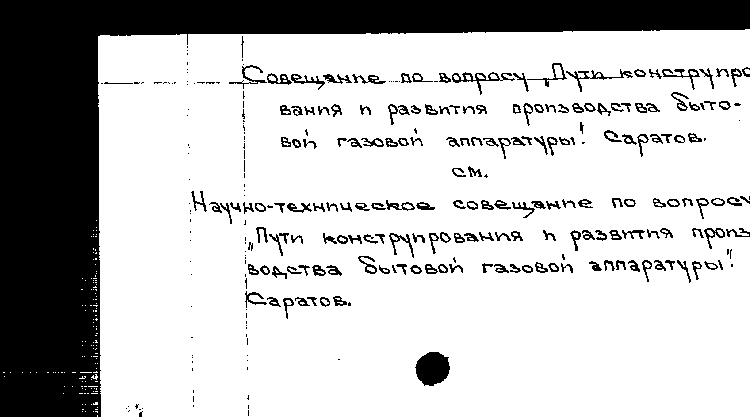 Совещание по вопросу „Пути конструпро
вания и развития производства быто-
вой газовой аппаратуры". Саратов.
см.
Научно-техническое совещание по вопросу
„Пути конструирования и развития произ
водства бытовой газовой аппаратуры".
Саратов.